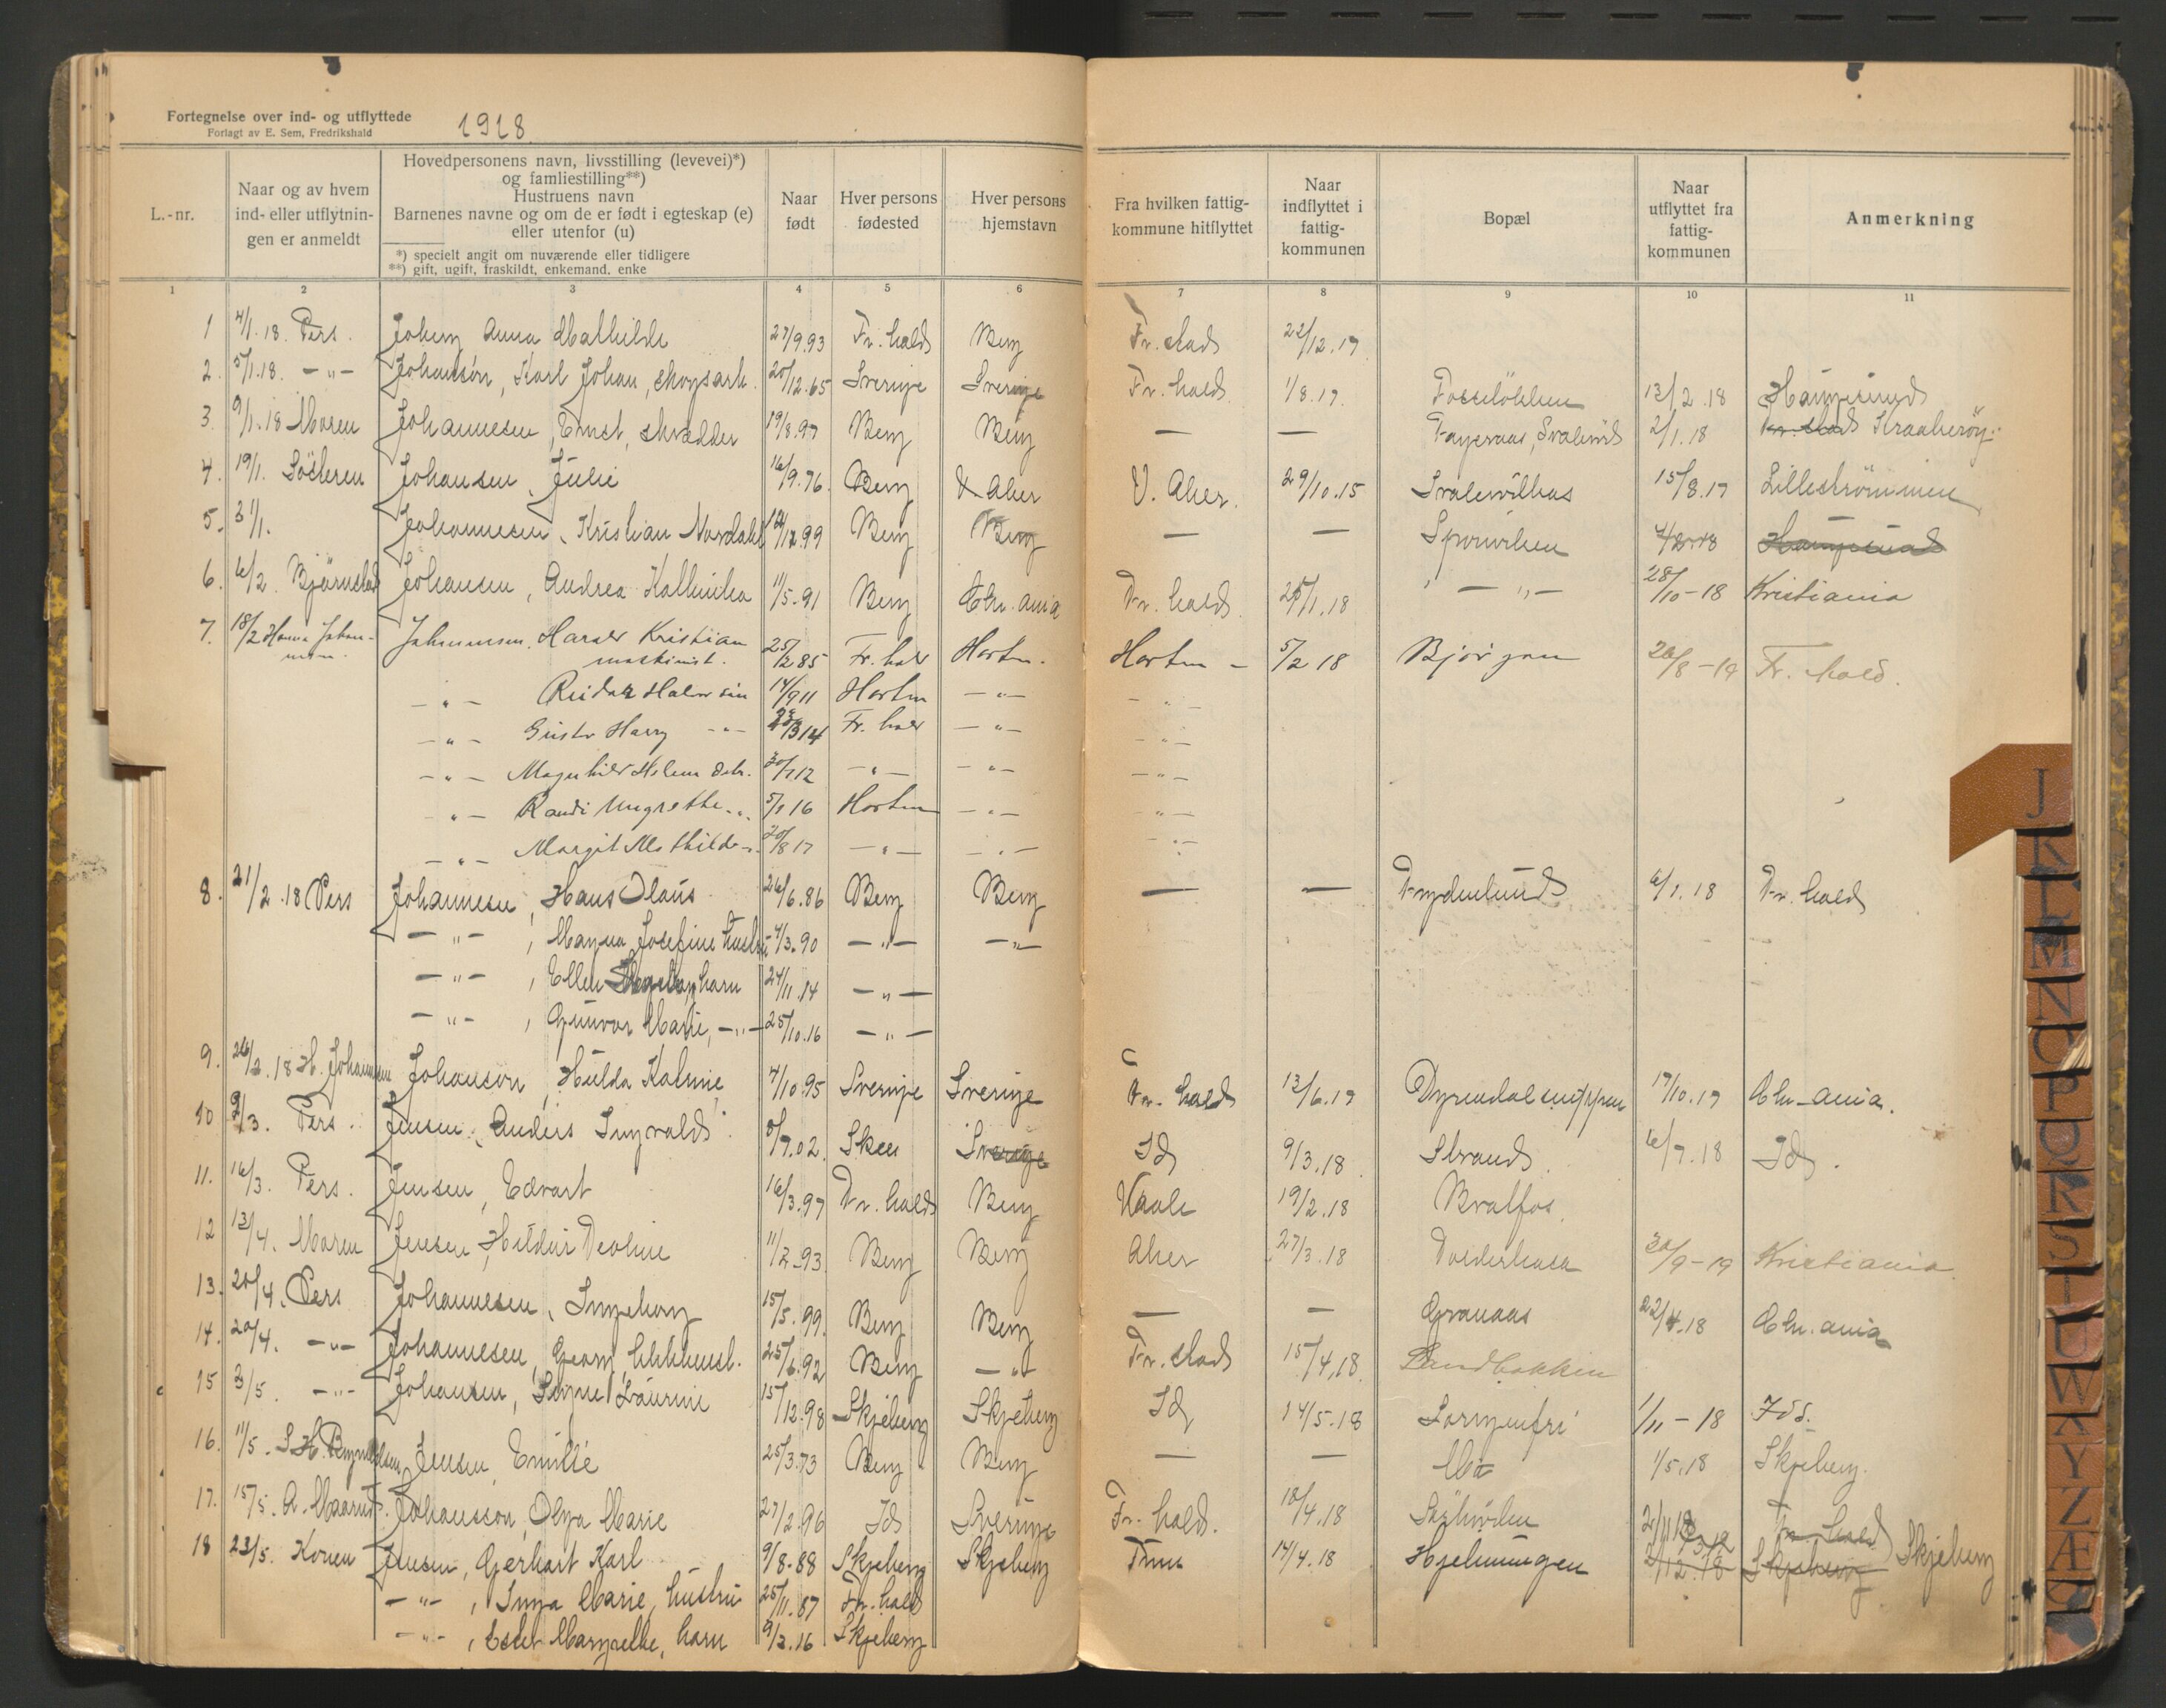 Fortegnelse over ind- og utflyttede
Forlagt av E. Sem, Fredrikshald
1918
L.-nr.
Naar og av hvem ind- eller utflytningen er anmeldt
Hovedpersonens navn, livsstilling (levevei)*)
og famliestilling**)
Hustruens navn
Barnenes navne og om de er født i egteskap (e)
eller utenfor (u)
*) specielt angit om nuværende eller tidligere
**) gift, ugift, fraskildt, enkemand, enke
Naar født
Hver persons fødested
Hver persons hjemstavn
Fra hvilken fattigkommune hitflyttet
Naar indflyttet i fattigkommunen
Bopæl
Naar utflyttet fra fattigkommunen
Anmerkning
1 2 3 4 5 6 7 8 9 10 11
1 4/1.18. Pers. Joberg Anna Mathilde 27/9.93 Fr.hald Berg Fr.stad 22/12.17
2. 5/1.18. -"- Johanson, Karl Johan, skogsarb. 20/12.65 Sverige Sverige Fr.hald 1/8.17. Fosseløkken 13/2.18 Haugesund
3. 9/1.18 Maren Johannesen, Ernst, skrædder 19/8.97 Berg Berg — — Fageraas, 2/1.18 Fr.stad Kraakerøy
4. 19/1. Johansen, Julie 16/9.76. Berg V. Aker V. Aker. 29/10.15 15/8.17 Lillestrømmen
5. 31/1. Johannesen, Kristian Nordahl 12.99 Berg Berg — — Haugesund
6. 6/2. Bjørnstad Johansen, Andrea Kathinka 11/5-91 Berg Chr.ania Fr.hald 25/1.18 -"- 28/10-18 Kristiania
7. 18/2 Johannesen, Harald Kristian 25/2 85 Fr.hald Horten. Horten - 5/2 18 Bjørgen 26/8-19 Fr.hald.
maskinist.
-"- Reidar Halvor søn 14/9 11 Horten -"- -"-
-"- Gustav Harry -"- 3 14 Fr.hald -"- -"-
-"- Magnhild Helene datr. 12 -"- -"- -"-
-"- Randi Margrethe -"- 5/1 16 Horten -"- -"-
-"- Margit Mathilde -"- 20/8 17 -"- -"- -"-
8. 21/2.18 Pers Johannesen, Hans Olaus 26/6.86 Berg Berg — — Frydenlund 6/1.18 Fr.hald
-"-, Magna Josefine hustru 4/3.90 -"- -"-
-"-, Ellen barn 24/11.14 -"-
-"-, Gunvor Marie, -"- 25/10.16 -"-
9. 26/2.18 H. Johansen Johanson, Hulda Kalmie 4/10.95 Sverige Sverige Fr.hald 13/6.17 17/10.17 Chr.ania.
10 9/3. Pers. Jensen, Anders Ingvald 8/7.02. Skee Sverige Id 9/3.18. Strand. 6/7.18 Id.
11. 16/3. Pers. Jensen, Edvart 16/3.97 Fr.hald Berg Vaale 19/2.18 Bratfos.
12 13/4. Maren Jensen, Hildur Deoline 11/2.93 Berg Berg Aker 27/3.18 30/9-19 Kristiania.
13. 20/4. Pers Johannesen, Ingeborg 15/5.99. Berg Berg — — Granaas 22/4.18 Chr.ania
14. 20/4. -"- Johannesen, Georg, 25/6.92 Berg -"- Fr.stad 15/4.18. Sandbakken
15 3/5. -"- Johansen, Signe Laurine 15/12.98 Skjeberg Skjeberg Id 14/5.18 Sorgenfri 1/11-18 Idd.
16. 11/5. Jensen, Emilie 25/3.73 Berg Berg — — Mo 1/5.18 Skjeberg.
17. 15/5. A. Maarud. Johansson, Olga Marie 27/2.96 Id Sverige Fr.hald. 18/4.18 Fr.hald
18 23/5. Konen Jensen, Gerhart Karl 9/8-88 Skjeberg Skjeberg Tune 14/4.18 Hjelmungen 12.18 Skjeberg Skjeberg
-"-, Inga Marie, hustru 25/11.87 Fr.hald
-"-, Ester Margrethe, barn 9/2.16 Skjeberg
J
K
L
M
N
O
P
Q
R
S
T
U
W
X
Y
Z
Æ
Ø